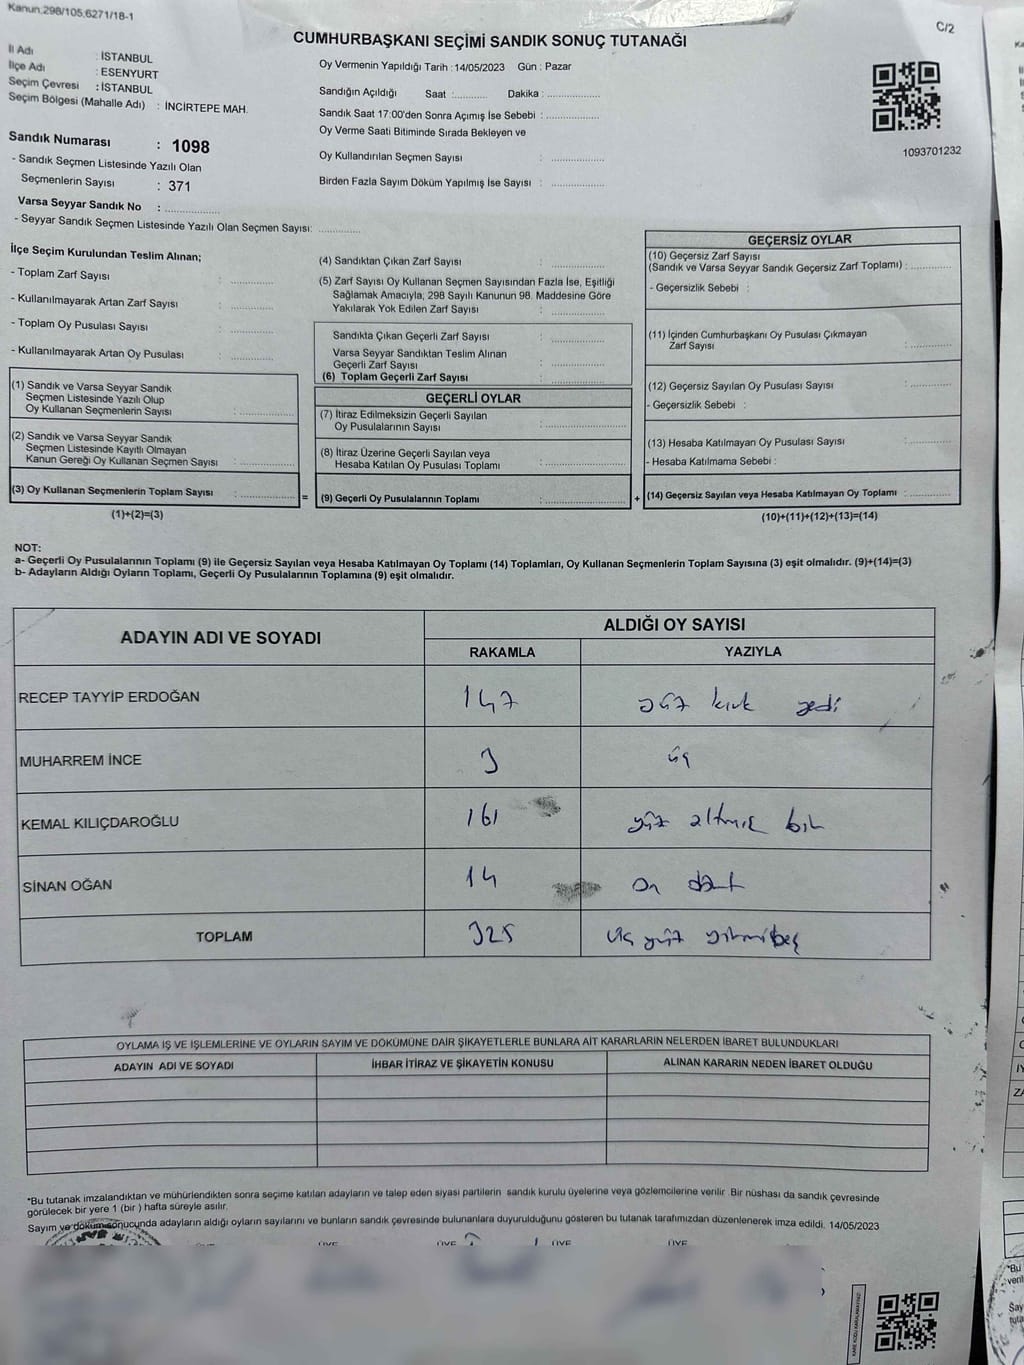 Kanun:298/105;6271/18-1
C/2
CUMHURBAŞKANI SEÇİMİ SANDIK SONUÇ TUTANAĞI
İl Adı : İSTANBUL
İlçe Adı : ESENYURT
Seçim Çevresi : İSTANBUL
Seçim Bölgesi (Mahalle Adı) : İNCİRTEPE MAH.
Oy Vermenin Yapıldığı Tarih :14/05/2023 Gün : Pazar
Sandığın Açıldığı Saat :.......... Dakika : ................
Sandık Saat 17:00'den Sonra Açımış İse Sebebi : ................
Oy Verme Saati Bitiminde Sırada Bekleyen ve
Oy Kullandırılan Seçmen Sayısı : ................
Birden Fazla Sayım Döküm Yapılmış İse Sayısı : ................
1093701232
Sandık Numarası : 1098
- Sandık Seçmen Listesinde Yazılı Olan
Seçmenlerin Sayısı : 371
Varsa Seyyar Sandık No : ................
- Seyyar Sandık Seçmen Listesinde Yazılı Olan Seçmen Sayısı: ............
İlçe Seçim Kurulundan Teslim Alınan;
- Toplam Zarf Sayısı : ............
- Kullanılmayarak Artan Zarf Sayısı : ............
- Toplam Oy Pusulası Sayısı : ............
- Kullanılmayarak Artan Oy Pusulası : ............
(1) Sandık ve Varsa Seyyar Sandık
Seçmen Listesinde Yazılı Olup
Oy Kullanan Seçmenlerin Sayısı : ................
(2) Sandık ve Varsa Seyyar Sandık
Seçmen Listesinde Kayıtlı Olmayan
Kanun Gereği Oy Kullanan Seçmen Sayısı : ................
(3) Oy Kullanan Seçmenlerin Toplam Sayısı : ................
(1)+(2)=(3)
=
(4) Sandıktan Çıkan Zarf Sayısı : ................
(5) Zarf Sayısı Oy Kullanan Seçmen Sayısından Fazla İse, Eşitliği
Sağlamak Amacıyla, 298 Sayılı Kanunun 98. Maddesine Göre
Yakılarak Yok Edilen Zarf Sayısı : ................
Sandıkta Çıkan Geçerli Zarf Sayısı : ................
Varsa Seyyar Sandıktan Teslim Alınan
Geçerli Zarf Sayısı : ................
(6) Toplam Geçerli Zarf Sayısı : ................
GEÇERLİ OYLAR
(7) İtiraz Edilmeksizin Geçerli Sayılan
Oy Pusulalarının Sayısı : ................
(8) İtiraz Üzerine Geçerli Sayılan veya
Hesaba Katılan Oy Pusulası Toplamı : ................
(9) Geçerli Oy Pusulalarının Toplamı : ................
+
GEÇERSİZ OYLAR
(10) Geçersiz Zarf Sayısı
(Sandık ve Varsa Seyyar Sandık Geçersiz Zarf Toplamı) : ............
- Geçersizlik Sebebi :
(11) İçinden Cumhurbaşkanı Oy Pusulası Çıkmayan
Zarf Sayısı : ............
(12) Geçersiz Sayılan Oy Pusulası Sayısı : ............
- Geçersizlik Sebebi :
(13) Hesaba Katılmayan Oy Pusulası Sayısı : ............
- Hesaba Katılmama Sebebi :
(14) Geçersiz Sayılan veya Hesaba Katılmayan Oy Toplamı : ............
(10)+(11)+(12)+(13)=(14)
NOT:
a- Geçerli Oy Pusulalarının Toplamı (9) ile Geçersiz Sayılan veya Hesaba Katılmayan Oy Toplamı (14) Toplamları, Oy Kullanan Seçmenlerin Toplam Sayısına (3) eşit olmalıdır. (9)+(14)=(3)
b- Adayların Aldığı Oyların Toplamı, Geçerli Oy Pusulalarının Toplamına (9) eşit olmalıdır.
ADAYIN ADI VE SOYADI
ALDIĞI OY SAYISI
RAKAMLA YAZIYLA
RECEP TAYYİP ERDOĞAN 147 yüz kırk yedi
MUHARREM İNCE 3 üç
KEMAL KILIÇDAROĞLU 161 yüz altmış bir
SİNAN OĞAN 14 on dört
TOPLAM 325 üç yüz yirmibeş
OYLAMA İŞ VE İŞLEMLERİNE VE OYLARIN SAYIM VE DÖKÜMÜNE DAİR ŞİKAYETLERLE BUNLARA AİT KARARLARIN NELERDEN İBARET BULUNDUKLARI
ADAYIN ADI VE SOYADI İHBAR İTİRAZ VE ŞİKAYETİN KONUSU ALINAN KARARIN NEDEN İBARET OLDUĞU
*Bu tutanak imzalandıktan ve mühürlendikten sonra seçime katılan adayların ve talep eden siyasi partilerin sandık kurulu üyelerine veya gözlemcilerine verilir Bir nüshası da sandık çevresinde
görülecek bir yere 1 (bir ) hafta süreyle asılır.
Sayım ve döküm sonucunda adayların aldığı oyların sayılarını ve bunların sandık çevresinde bulunanlara duyurulduğunu gösteren bu tutanak tarafımızdan düzenlenerek imza edildi. 14/05/2023
ÜYE ÜYE ÜYE ÜYE